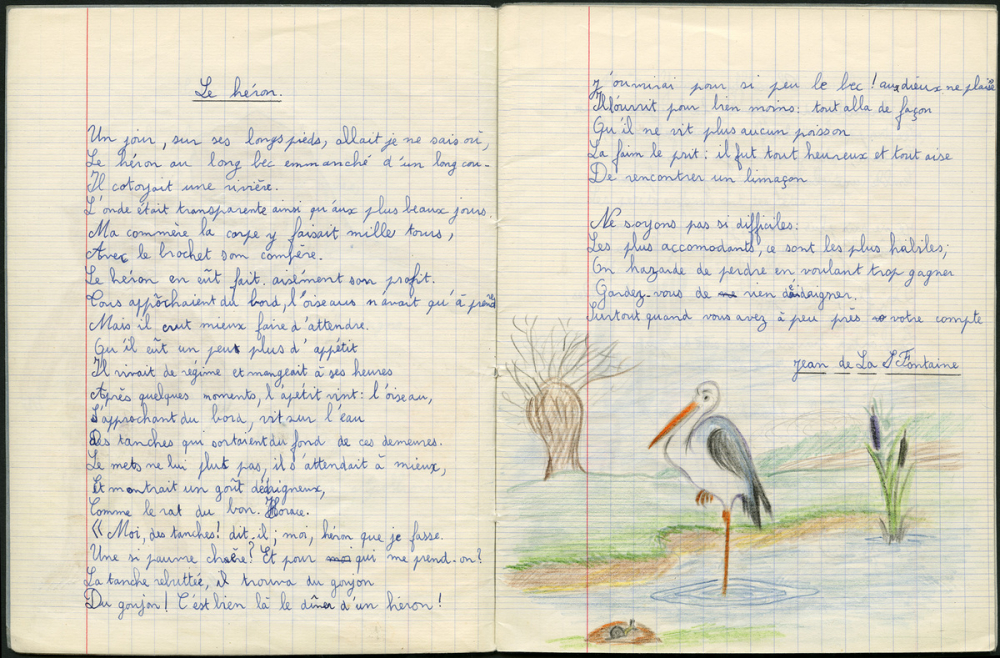 Le héron.
Un jour, sur ses longs pieds, allait je ne sais où,
Le héron au long bec emmanché d'un long cou-
Il cotoyait une rivière.
L'onde était transparente ainsi qu'aux plus beaux jours.
Ma commère la carpe y faisait mille tours,
Avec le brochet son compère.
Le héron en eût fait aisément son profit.
Tous approchaient du bord, l'oiseau n'avait qu'à prendre
Mais il crut mieux faire d'attendre.
Qu'il eût un peu plus d'appétit
Il vivait de régime et mangeait à ses heures
Après quelques moments, l'apétit vint: l'oiseau,
S'approchant du bord, vit sur l'eau
Des tanches qui sortaient du fond de ces demeures.
Le mets ne lui plut pas, il s'attendait à mieux,
Et montrait un goût dédaigneux,
Comme le rat du bon Horace.
« Moi, des tanches! dit-il; moi, héron que je fasse
Une si pauvre chère? Et pour qui me prend-on?
La tanche rebuttée, il trouva du goujon
Du goujon! C'est bien là le dîner d'un héron!
J'ouvrirai pour si peu le bec! aux dieux ne plaise
Il l'ouvrit pour bien moins: tout alla de façon
Qu'il ne vit plus aucun poisson
La faim le prit: il fut tout heureux et tout aise
De rencontrer un limaçon
Ne soyons pas si difficiles:
Les plus accomodants, ce sont les plus habiles;
On hazarde de perdre en voulant trop gagner
Gardez-vous de rien dédaigner.
Surtout quand vous avez à peu près votre compte
Jean de La Fontaine